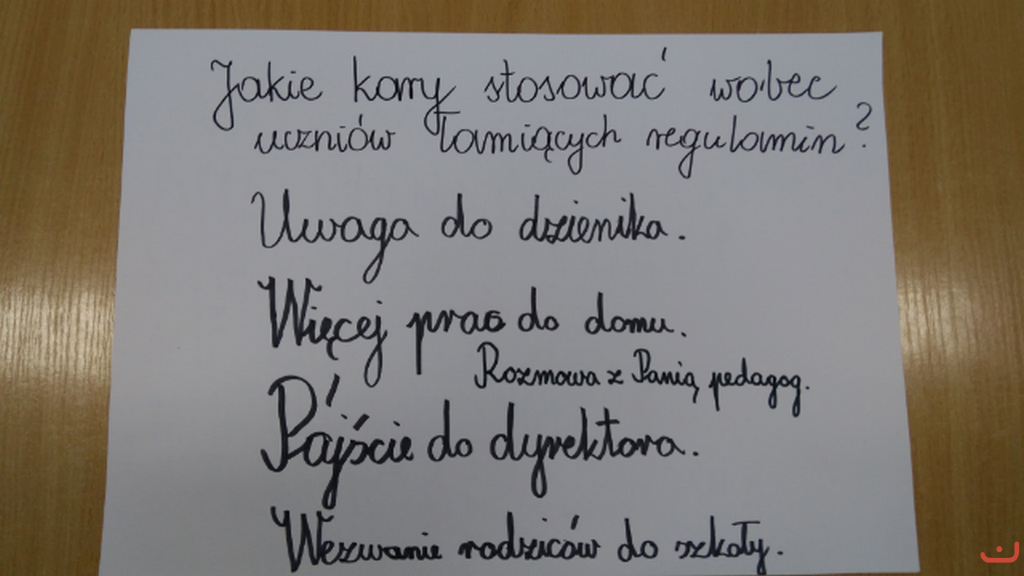 Jakie kary stosować wobec
uczniów łamiących regulamin?
Uwaga do dzienika.
Więcej prac do domu.
Rozmowa z Panią pedagog.
Pójście do dyrektora.
Wezwanie rodziców do szkoły.